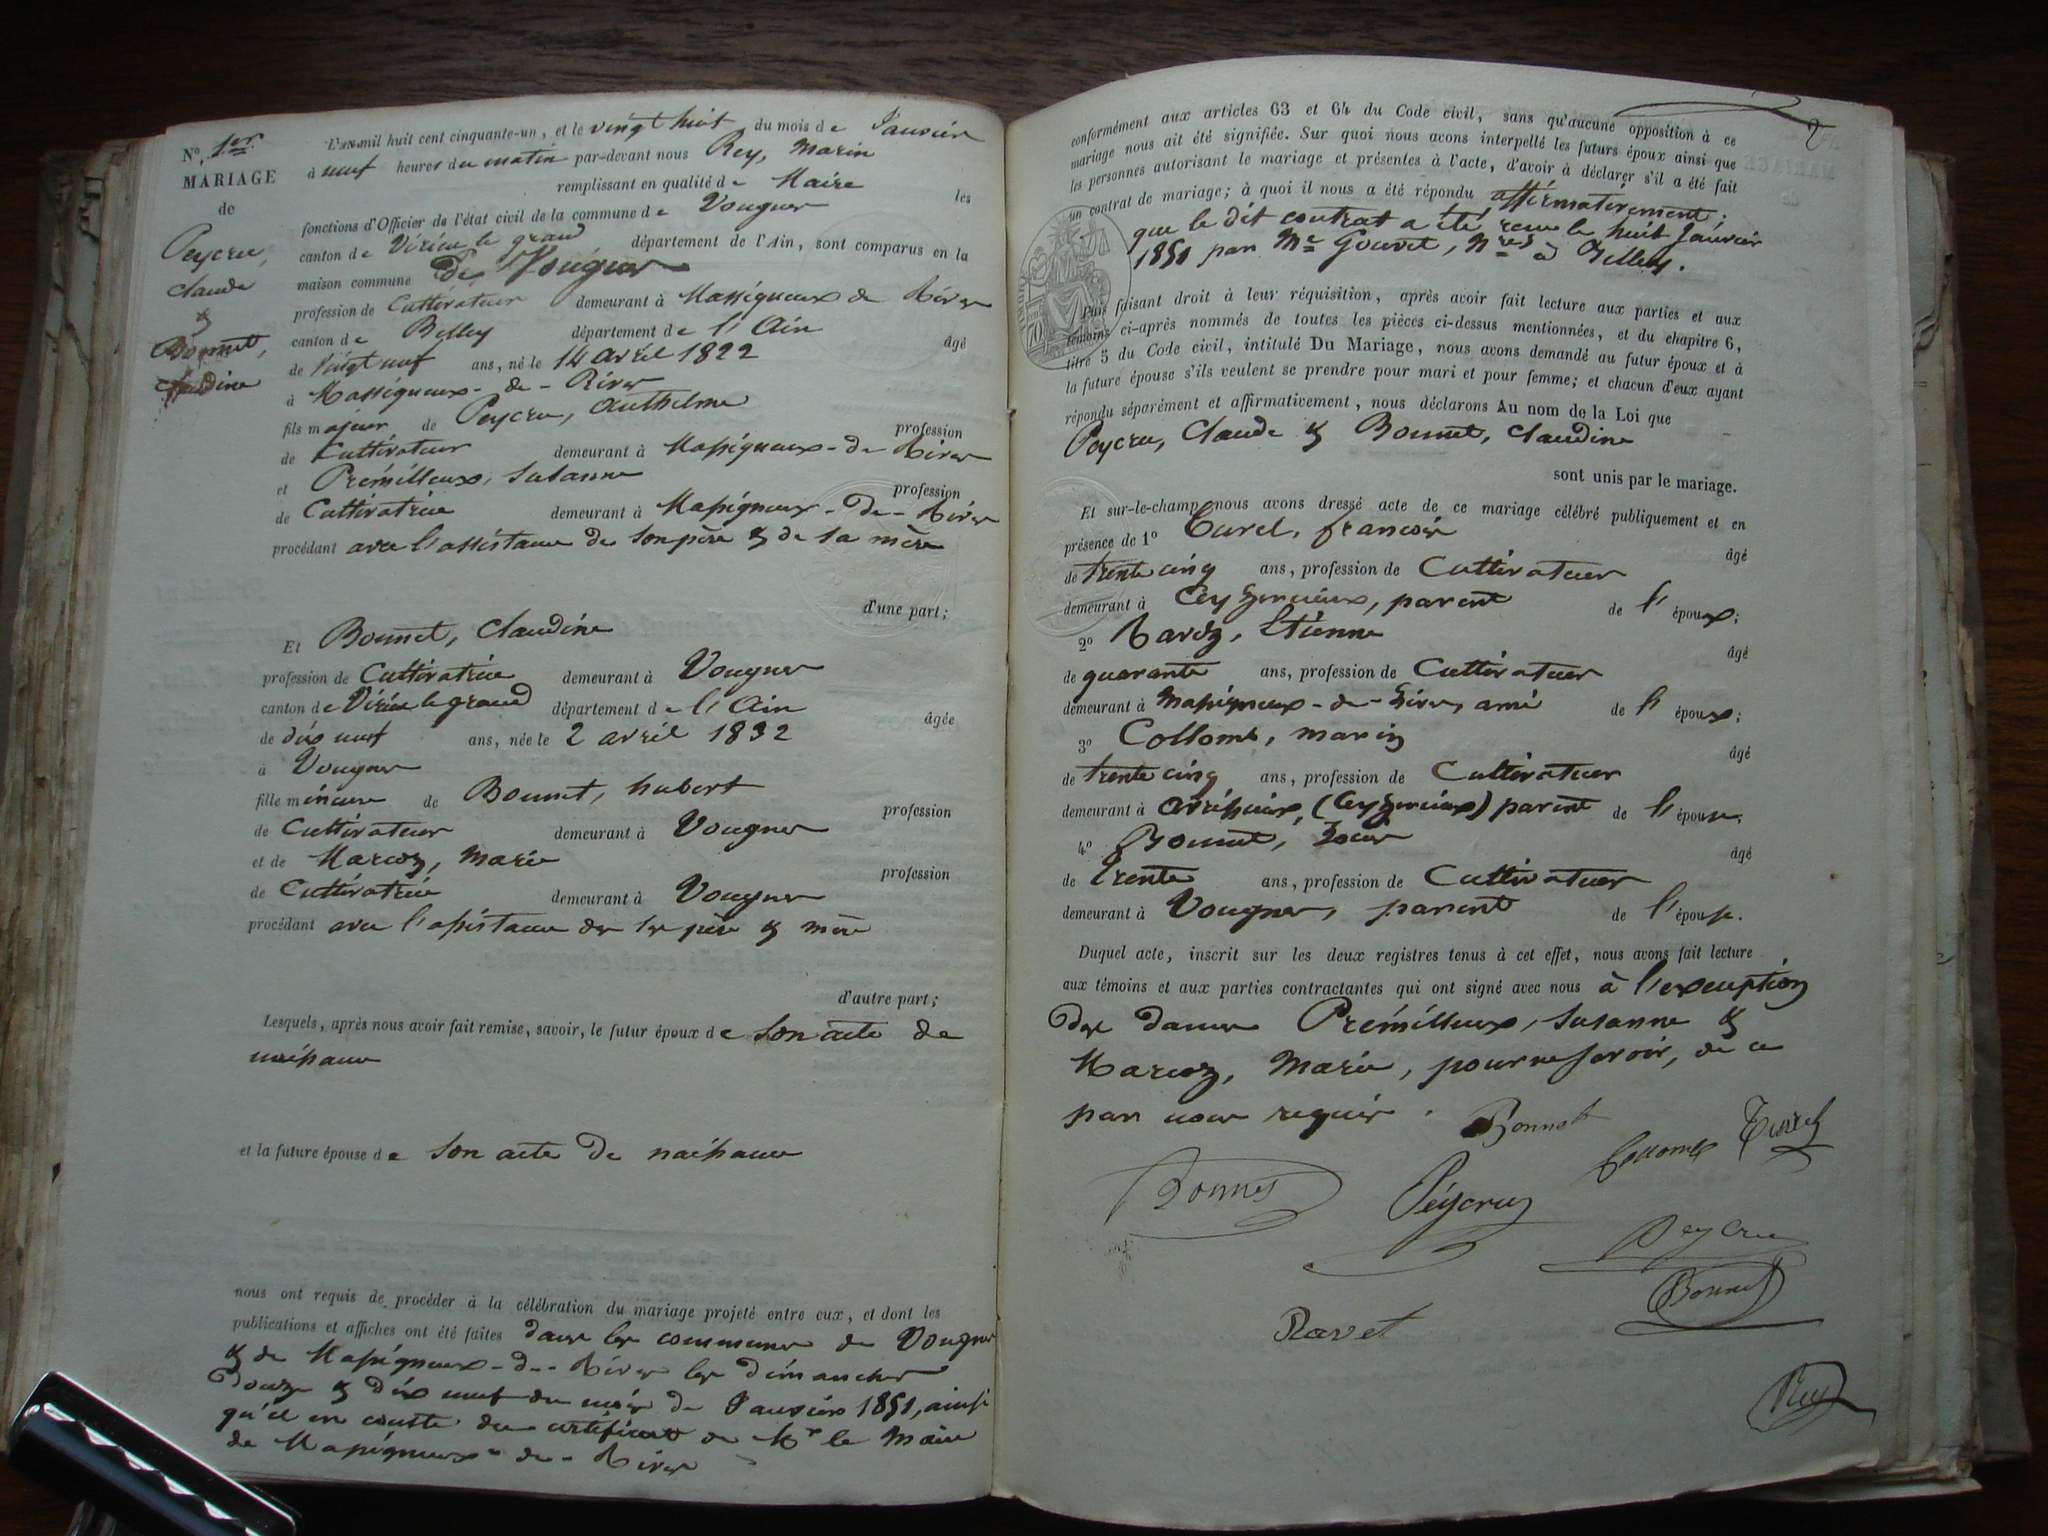 N°. 1er.
MARIAGE
de
Peycru,
Claude
&
Bonnet,
Claudine
L'an mil huit cent cinquante-un, et le vingt huit du mois de Janvier
à neuf heures du matin par-devant nous Rey, Marin
remplissant en qualité de Maire les
fonctions d'Officier de l'état civil de la commune de Vougnes
canton de Virieu le grand département de l'Ain, sont comparus en la
maison commune de Vougnes
profession de Cultivateur demeurant à Massigneux de Rives
canton de Belley département de l'Ain âgé
de vingt neuf ans, né le 14 avril 1822
à Massigneux-de-Rives
fils majeur de Peycru, Anthelme profession
de Cultivateur demeurant à Massigneux-de-Rives
et Prémilleux, Susanne profession
de Cultivatrice demeurant à Massigneux-de-Rives
procédant avec l'assistance de son père & de sa mère
d'une part;
Et Bonnet, Claudine
profession de Cultivatrice demeurant à Vougnes
canton de Virieu le grand département de l'Ain âgée
de dix neuf ans, née le 2 avril 1832
à Vougnes
fille mineure de Bonnet, hubert profession
de Cultivateur demeurant à Vougnes
et de Marcoz, Marie profession
de Cultivatrice demeurant à Vougnes
procédant avec l'assistance de ses père & mère
d'autre part;
Lesquels, après nous avoir fait remise, savoir, le futur époux de son acte de
naissance
et la future épouse de son acte de naissance
nous ont requis de procéder à la célébration du mariage projeté entre eux, et dont les
publications et affiches ont été faites dans les communes de Vougnes
& de Massigneux-de-Rives les dimanches
douze & dix neuf du mois de Janvier 1851, ainsi
qu'il en conste du certificat de Mr le Maire
de Massigneux-de-Rives
conformément aux articles 63 et 64 du Code civil, sans qu'aucune opposition à ce
mariage nous ait été signifiée. Sur quoi nous avons interpellé les futurs époux ainsi que
les personnes autorisant le mariage et présentes à l'acte, d'avoir à déclarer s'il a été fait
un contrat de mariage; à quoi il nous a été répondu affirmativement;
que le dit contrat a été recu le huit Janvier
1851 par Me Gouvet, Nre à Belley.
Puis faisant droit à leur réquisition, après avoir fait lecture aux parties et aux
témoins ci-après nommés de toutes les pièces ci-dessus mentionnées, et du chapitre 6,
titre 5 du Code civil, intitulé Du Mariage, nous avons demandé au futur époux et à
la future épouse s'ils veulent se prendre pour mari et pour femme; et chacun d'eux ayant
répondu séparément et affirmativement, nous déclarons Au nom de la Loi que
Peycru, Claude & Bonnet, Claudine
sont unis par le mariage.
Et sur-le-champ nous avons dressé acte de ce mariage célébré publiquement et en
présence de 1° Turel, françois âgé
de trente cinq ans, profession de Cultivateur
demeurant à Ceyzerieux, parent de l'époux;
2° Etienne âgé
de quarante ans, profession de Cultivateur
demeurant à Massigneux-de-Rives, ami de l'époux;
3° Collomb, marin âgé
de trente cinq ans, profession de Cultivateur
demeurant à (Ceyzerieux) parent de l'épouse,
4° Bonnet, âgé
de trente ans, profession de Cultivateur
demeurant à Vougnes, parent de l'épouse.
Duquel acte, inscrit sur les deux registres tenus à cet effet, nous avons fait lecture
aux témoins et aux parties contractantes qui ont signé avec nous à l'exception
des dames Prémilleux, Susanne &
Marcoz, Marie, pour ne savoir, de ce
par nous requis.
Bonnet
Collomb Turel
Bonnet Péycru
Peycru
Bonnet
Ravet
Rey